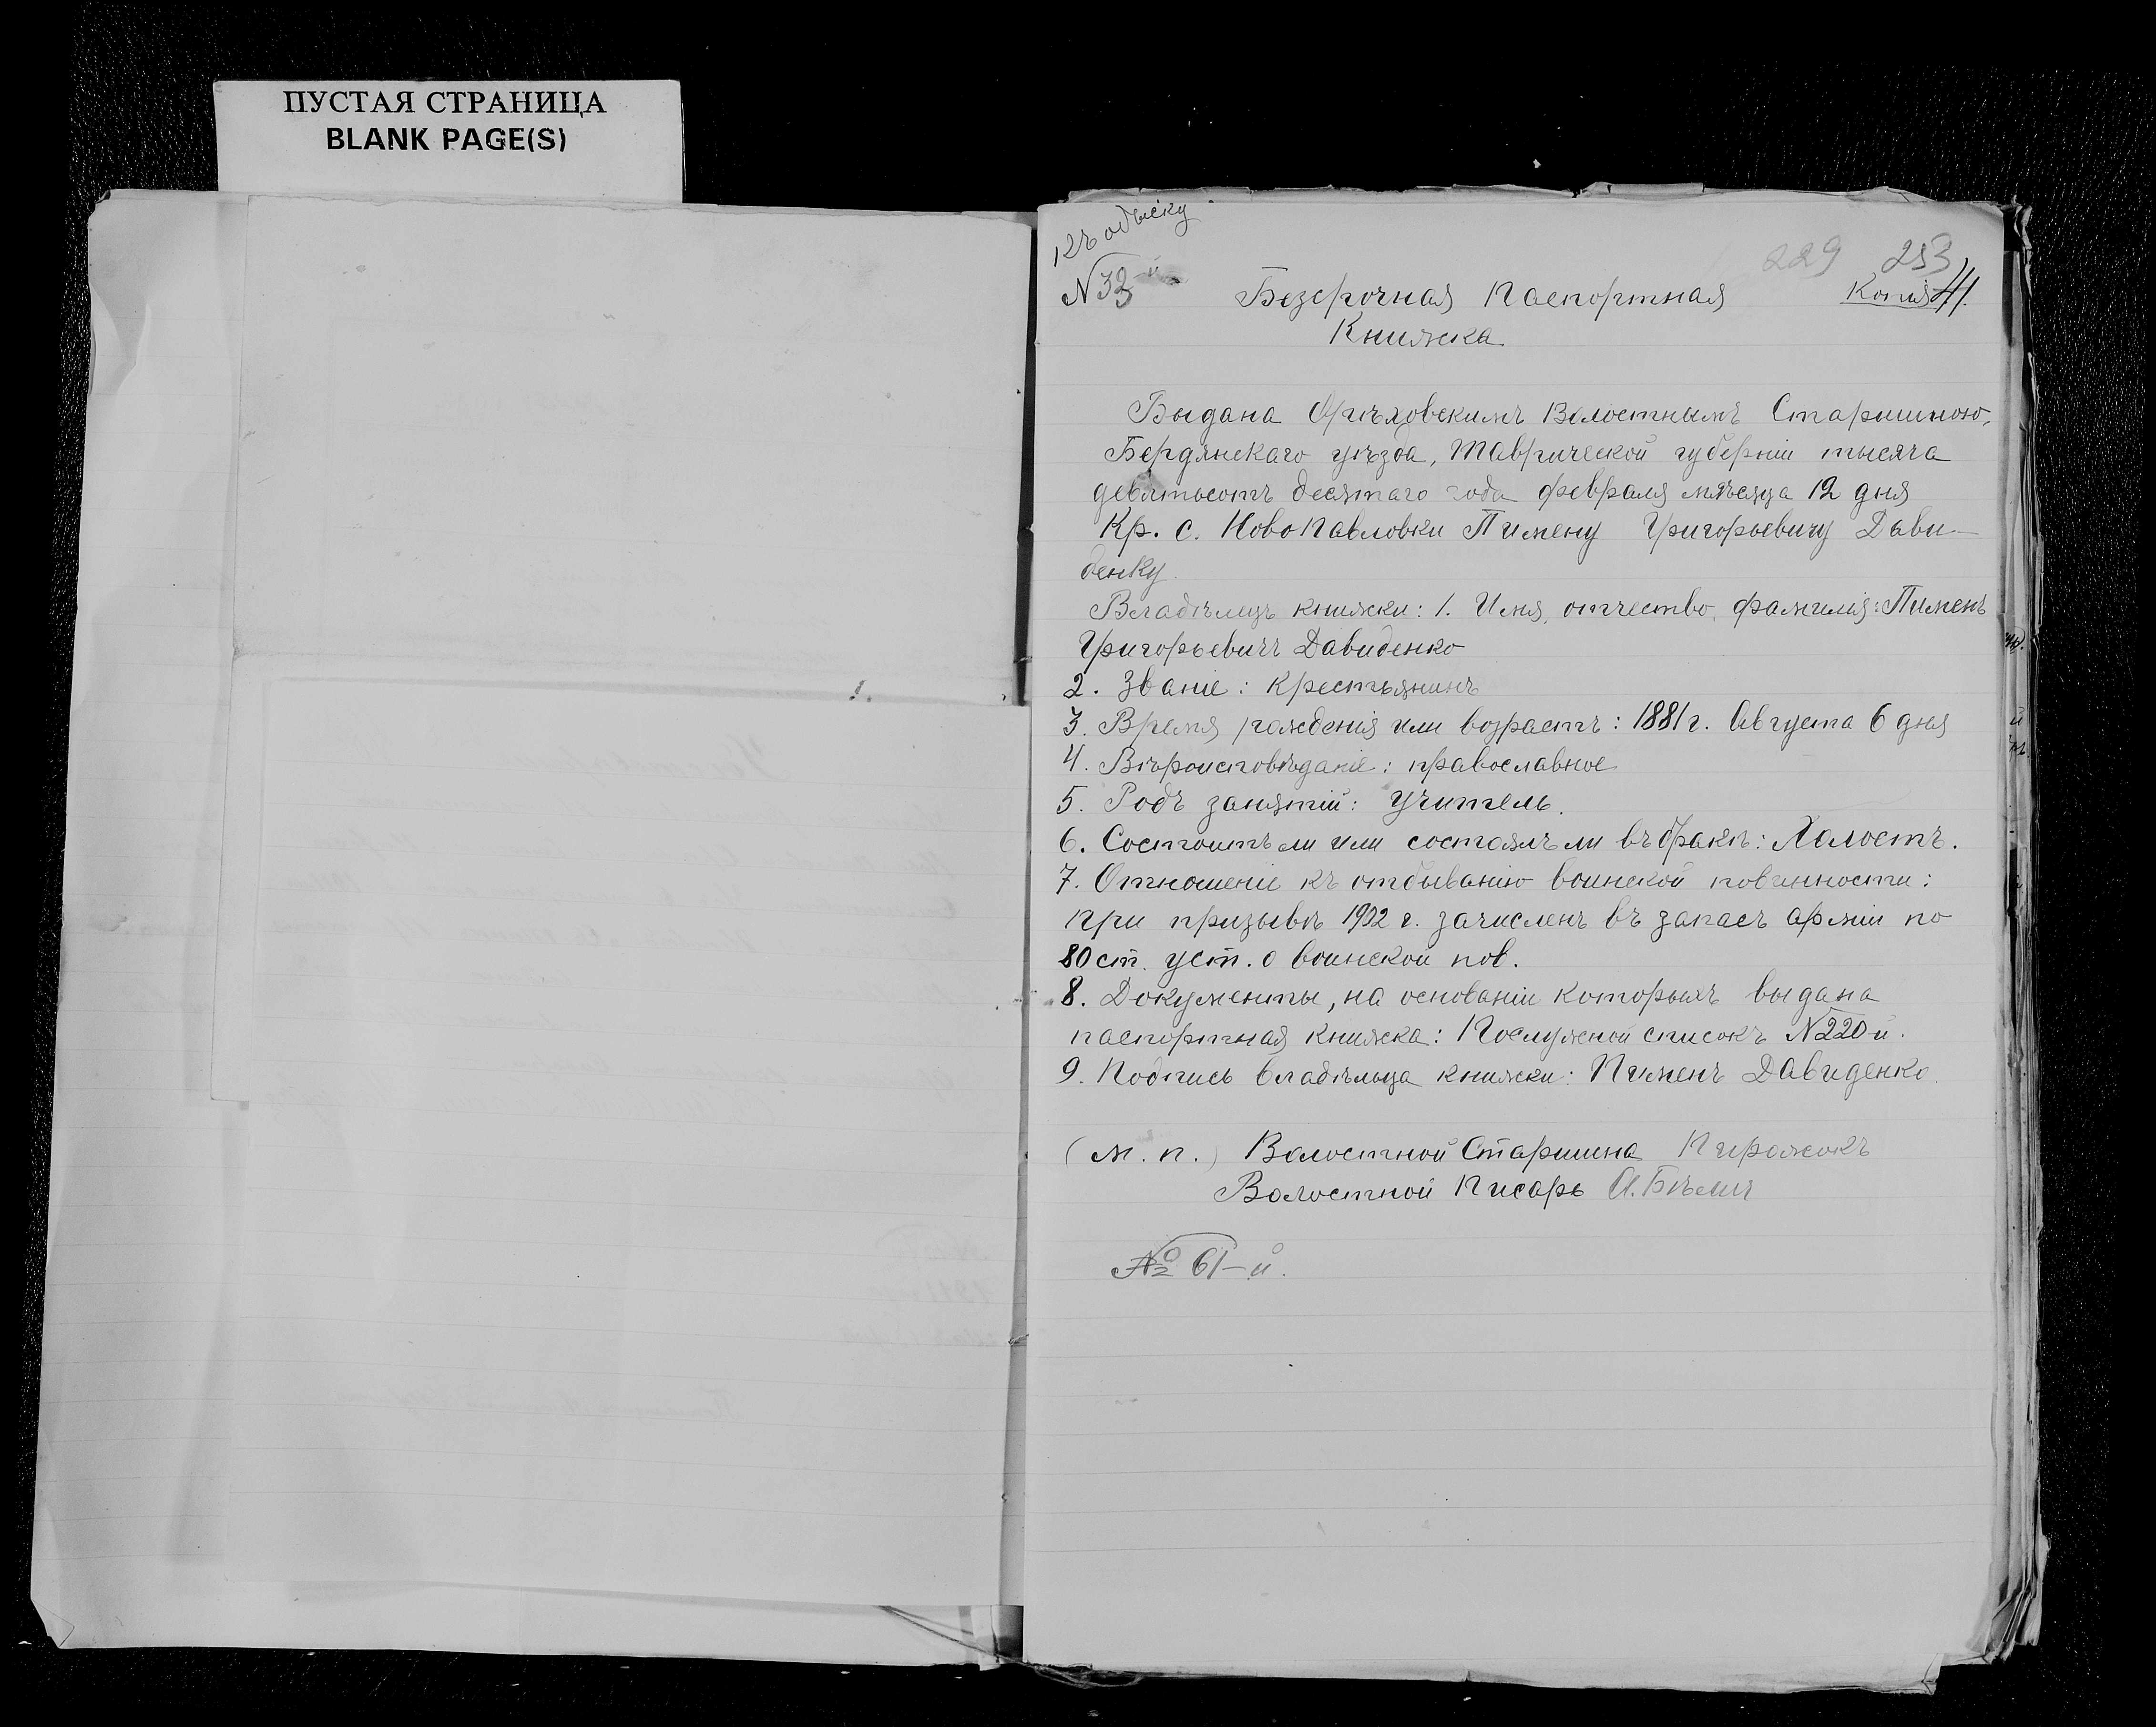 ПУСТАЯ СТРАНИЦА
BLANK PAGE(S)
Къ обыску
N 33-й
229 253
Безсрочная Паспортная
Копія 41.
Книжка
Выдана Орѣховскимъ Волостнымъ Старшиною,
Бердянскаго уѣзда, Таврической губерніи тысяча
девятьсотъ десятаго года февраля мѣсяца 12 дня
Кр. с. НовоПавловки Пимену Григорьевичу Дави-
денку.
Владѣлецъ книжки: 1. Имя, отчество, фамилія: Пименъ
Григорьевичъ Давиденко
2. Званіе: Крестьянинъ
3. Время рожденія или возрастъ: 1881 г. Августа 6 дня
4. Вѣроисповѣданіе: православное
5. Родъ занятій: Учитель.
6. Состоитъ ли или состоялъ ли въ бракѣ: Холостъ.
7. Отношеніе къ отбыванію воинской повинности:
при призывѣ 1902 г. зачисленъ въ запасъ арміи по
80 ст. уст. о воинской пов.
8. Документы, на основаніи которыхъ выдана
паспортная книжка: Послужной списокъ N 220 й.
9. Подпись владѣльца книжки: Пименъ Давиденко.
(М. п.) Волостной Старшина Пирожокъ
Волостной Писарь
№ 61-й.